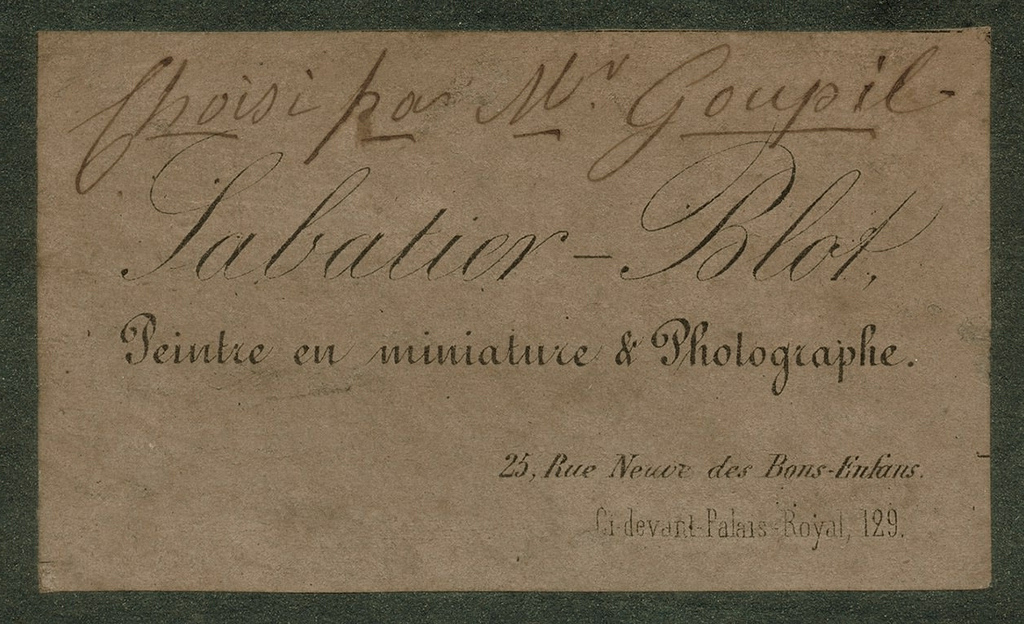 Choisi par Mr. Goupil
Sabatier-Blot,
Peintre en miniature & Photographe.
25, Rue Neuve des Bons-Enfans.
Ci-devant Palais-Royal, 129.